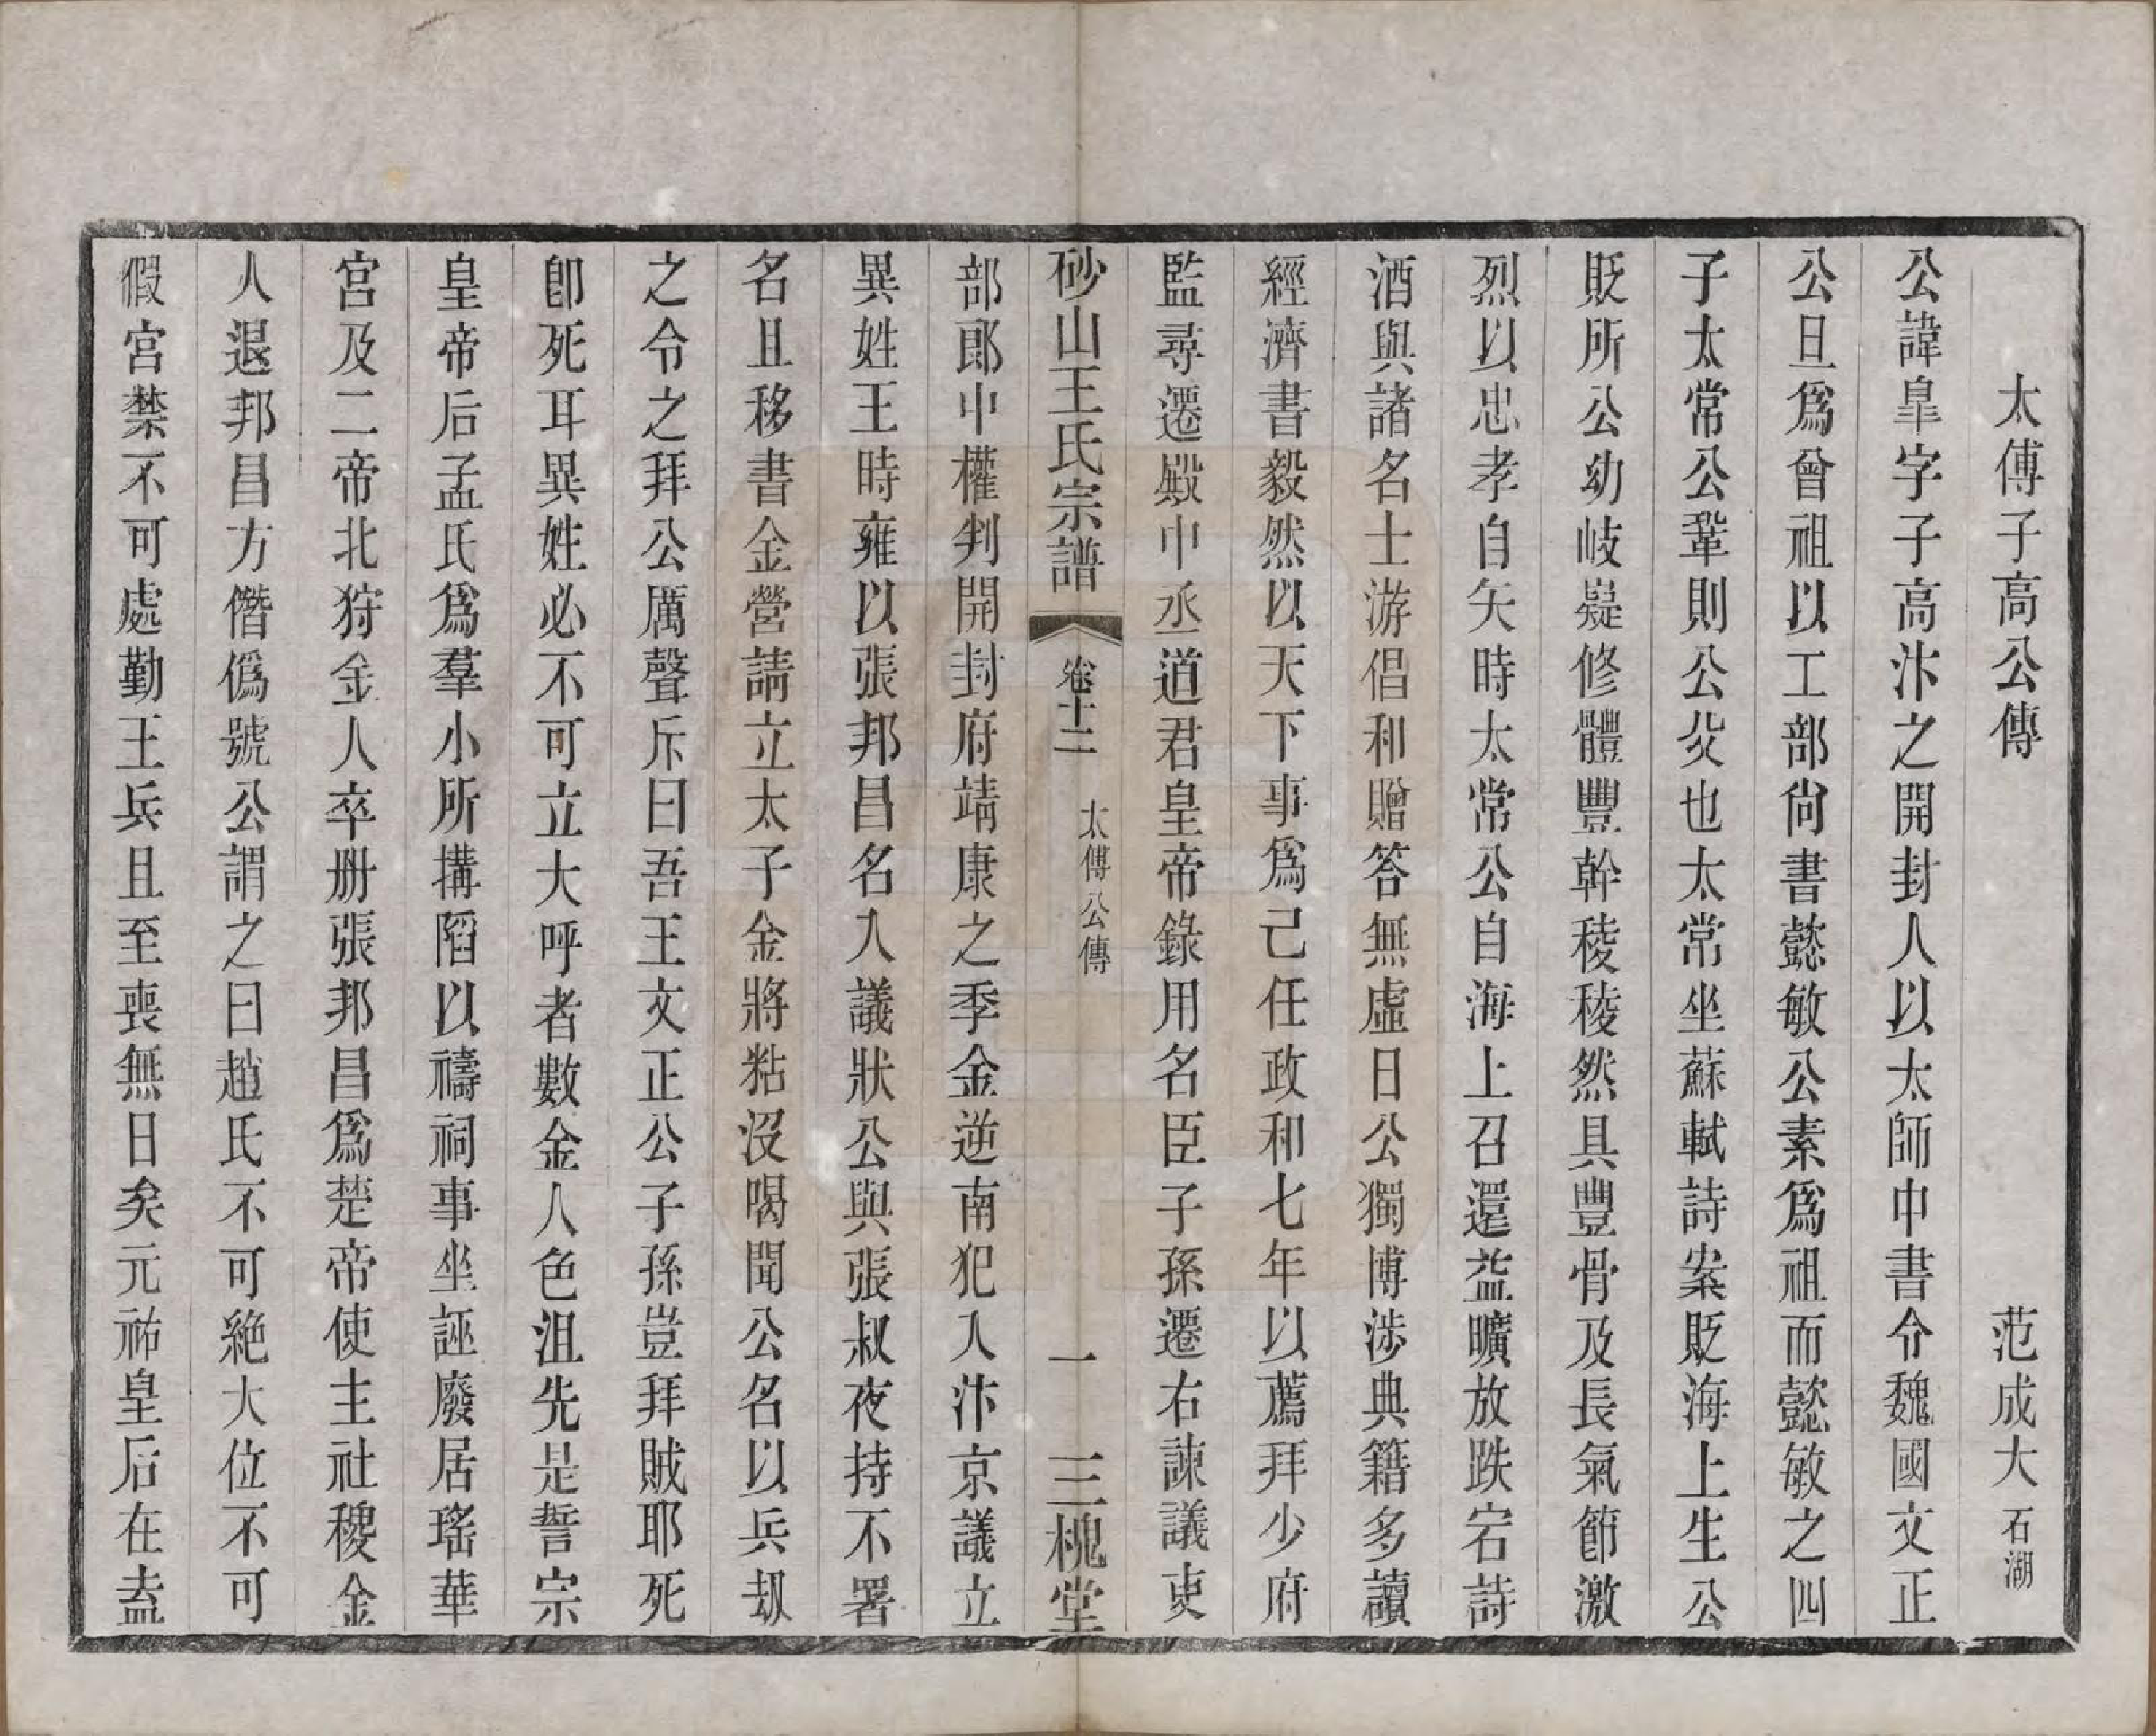 太傅子高公傳　范成大石湖
公諱臯字子高汴之開封人以太師中書令魏國文正
公旦爲曾祖以工部尙書懿敏公素爲祖而懿敏之四
子太常公鞏則公父也太常坐蘇軾詩案貶海上生公
貶所公幼岐嶷修體豐幹稜稜然具豐骨及長氣節激
烈以忠孝自矢時太常公自海上召還益曠放跌宕詩
酒與諸名士游倡和贈答無虛日公獨博涉典籍多讀
經濟書毅然以天下事爲己任政和七年以薦拜少府
監尋遷殿中丞道君皇帝錄用名臣子孫遷右諫議吏
砂山王氏宗譜　卷十二　太傅公傳　一　三槐堂
部郎中權判開封府靖康之季金逆南犯入汴京議立
異姓王時雍以張邦昌名入議狀公與張叔夜持不署
名且移書金營請立太子金將粘沒喝聞公名以兵刼
之令之拜公厲聲斥曰吾王文正公子孫豈拜賊耶死
卽死耳異姓必不可立大呼者數金人色沮先是誓宗
皇帝后孟氏爲羣小所搆陷以禱祠事坐誣廢居瑤華
宮及二帝北狩金人卒册張邦昌爲楚帝使主社稷金
人退邦昌方僭僞號公謂之曰趙氏不可絕大位不可
假宮禁不可處勤王兵且至喪無日矣元祐皇后在盍